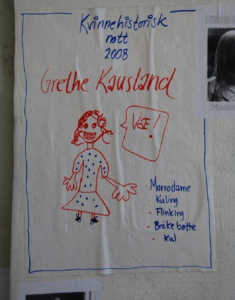 Kvinnehistorisk
natt
2008
Grethe Kausland
VÆ!
Morrodame
- Kuling
- Flinking
- Bråkebøtte
- Kul